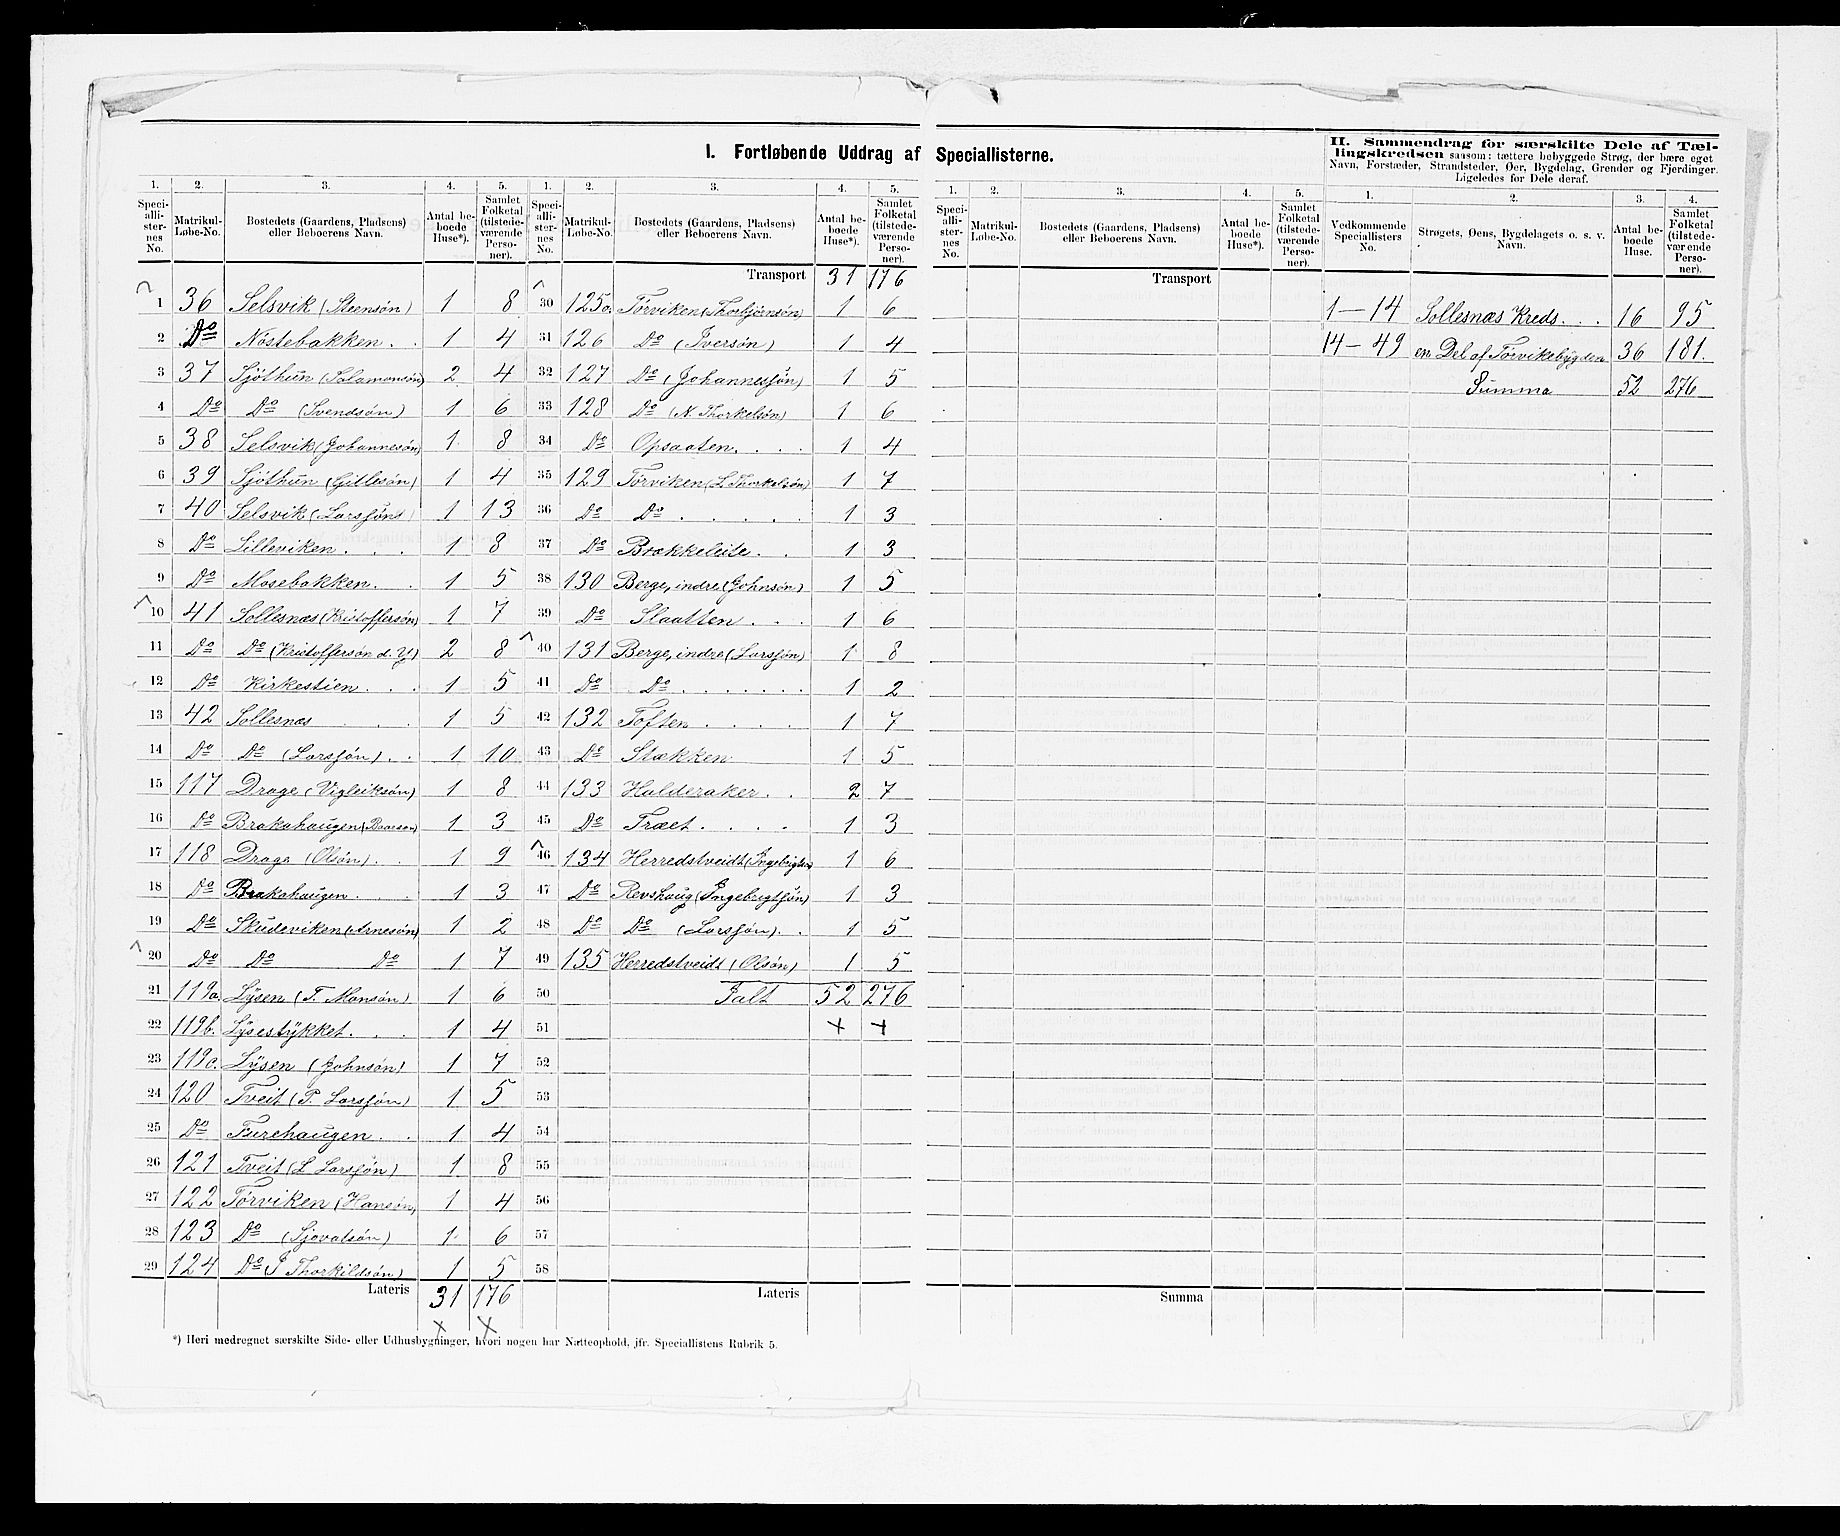 I. Fortløbende Uddrag af Speciallisterne.
II. Sammendrag for særskilte Dele af Tæl-
lingskredsen saasom: tættere bebyggede Strøg, der bære eget
Navn, Forstæder, Strandsteder, Øer, Bygdelag, Grender og Fjerdinger.
Ligeledes for Dele deraf.
1. 2. 3. 4. 5. 1. 2. 3. 4. 5.
Speciallisternes No. Matrikul-Løbe-No. Bostedets (Gaardens, Pladsens) eller Beboerens Navn. Antal beboede Huse*). Samlet Folketal (tilstedeværende Personer).
Speciallisternes No. Matrikul-Løbe-No. Bostedets (Gaardens, Pladsens) eller Beboerens Navn. Antal beboede Huse*). Samlet Folketal (tilstedeværende Personer).
1 36 Selsvik (Steensøn) 1 8
2 Do Nøstebakken . . 1 4
3 37 Sjöthun (Salamonsøn) 2 4
4 Do Do (Svendsøn) 1 6
5 38 Selsvik (Johannesøn) 1 8
6 39 Sjöthun (Gillesøn) 1 4
7 40 Selsvik (Larsføns) 1 13
8 Do Lilleviken . . . 1 8
9 Do Mosebakken. . 1 5
10 41 Sollesnæs (Kristoffersøn) 1 7
11 Do Do (Kristoffersøn d. Y) 2 8
12 Do Kirkestien . . . 1 5
13 42 Sollesnæs 1 5
14 Do Do (Larsføn) . . 1 10
15 117 Drage (Vigleiksøn) 1 8
16 Do Brakahaugen (Baarson) 1 3
17 118 Drage (Olsøn) . . 1 9
18 Do Brakahaugen . . . 1 3
19 Do Skudeviken (Arnesøn) 1 2
20 Do Do Do 1 7
21 119a. Lÿsen (T. Monsøn) 1 6
22 119b. Lÿsestÿkket. . . 1 4
23 119c. Lÿsen (Johnsøn) 1 7
24 120 Tveit (P. Larsføn) 1 5
25 Do Furehaugen . . 1 4
26 121 Tveit (L Larsføn) 1 8
27 122 Tørviken (Hansøn) 1 4
28 123 Do (Sjovatsøn) 1 6
29 124 Do (J Thorkildsøn) 1 5
Lateris 31 176
Transport 31 176
30 125a. Tørviken (Thorbjørnsøn) 1 6
31 126 Do (Iversøn) 1 4
32 127 Do (Johannesføn) 1 5
33 128 Do (N. Thorkelsøn) 1 6
34 Do Opsaaten. . . . 1 4
35 129 Tørviken (L. Thorkelsøn) 1 7
36 Do Do . . . . . 1 3
37 Do Brækkeleite. . . 1 3
38 130 Berge, indre (Johnsøn) 1 5
39 Do Slaatten . . . 1 6
40 131 Berge, indre (Larsføn) 1 8
41 Do Do . . . . . . . 1 2
42 132 Toften . . . . 1 7
43 Do Stækken 1 5
44 133 Halderaker. . . 2 7
45 Do Træet. . . . 1 3
46 134 Herredstveidt (Ingebrigtsøn) 1 6
47 Do Revshaug (Ingebrigtføn) 1 3
48 Do Do (Larsføn). . 1 5
49 135 Herredstveidt (Olsøn) 1 5
50 Ialt 52 276
51
52
53
54
55
56
57
58
Lateris
1. 2. 3. 4. 5.
Speciallisternes No. Matrikul-Løbe-No. Bostedets (Gaardens, Pladsens) eller Beboerens Navn. Antal beboede Huse*). Samlet Folketal (tilstedeværende Personer).
Transport
Summa
1. 2. 3. 4.
Vedkommende Speciallisters No. Strøgets, Øens, Bygdelagets o. s. v. Navn. Antal beboede Huse. Samlet Folketal (tilstedeværende Personer).
1 — 14 Sollesnæs Kreds. . . 16 95
14 — 49 en Del af Tørvikebygden 36 181.
Summa 52 276
*) Heri medregnet særskilte Side- eller Udhusbygninger, hvori nogen har Natteophold, jfr. Speciallistens Rubrik 5.